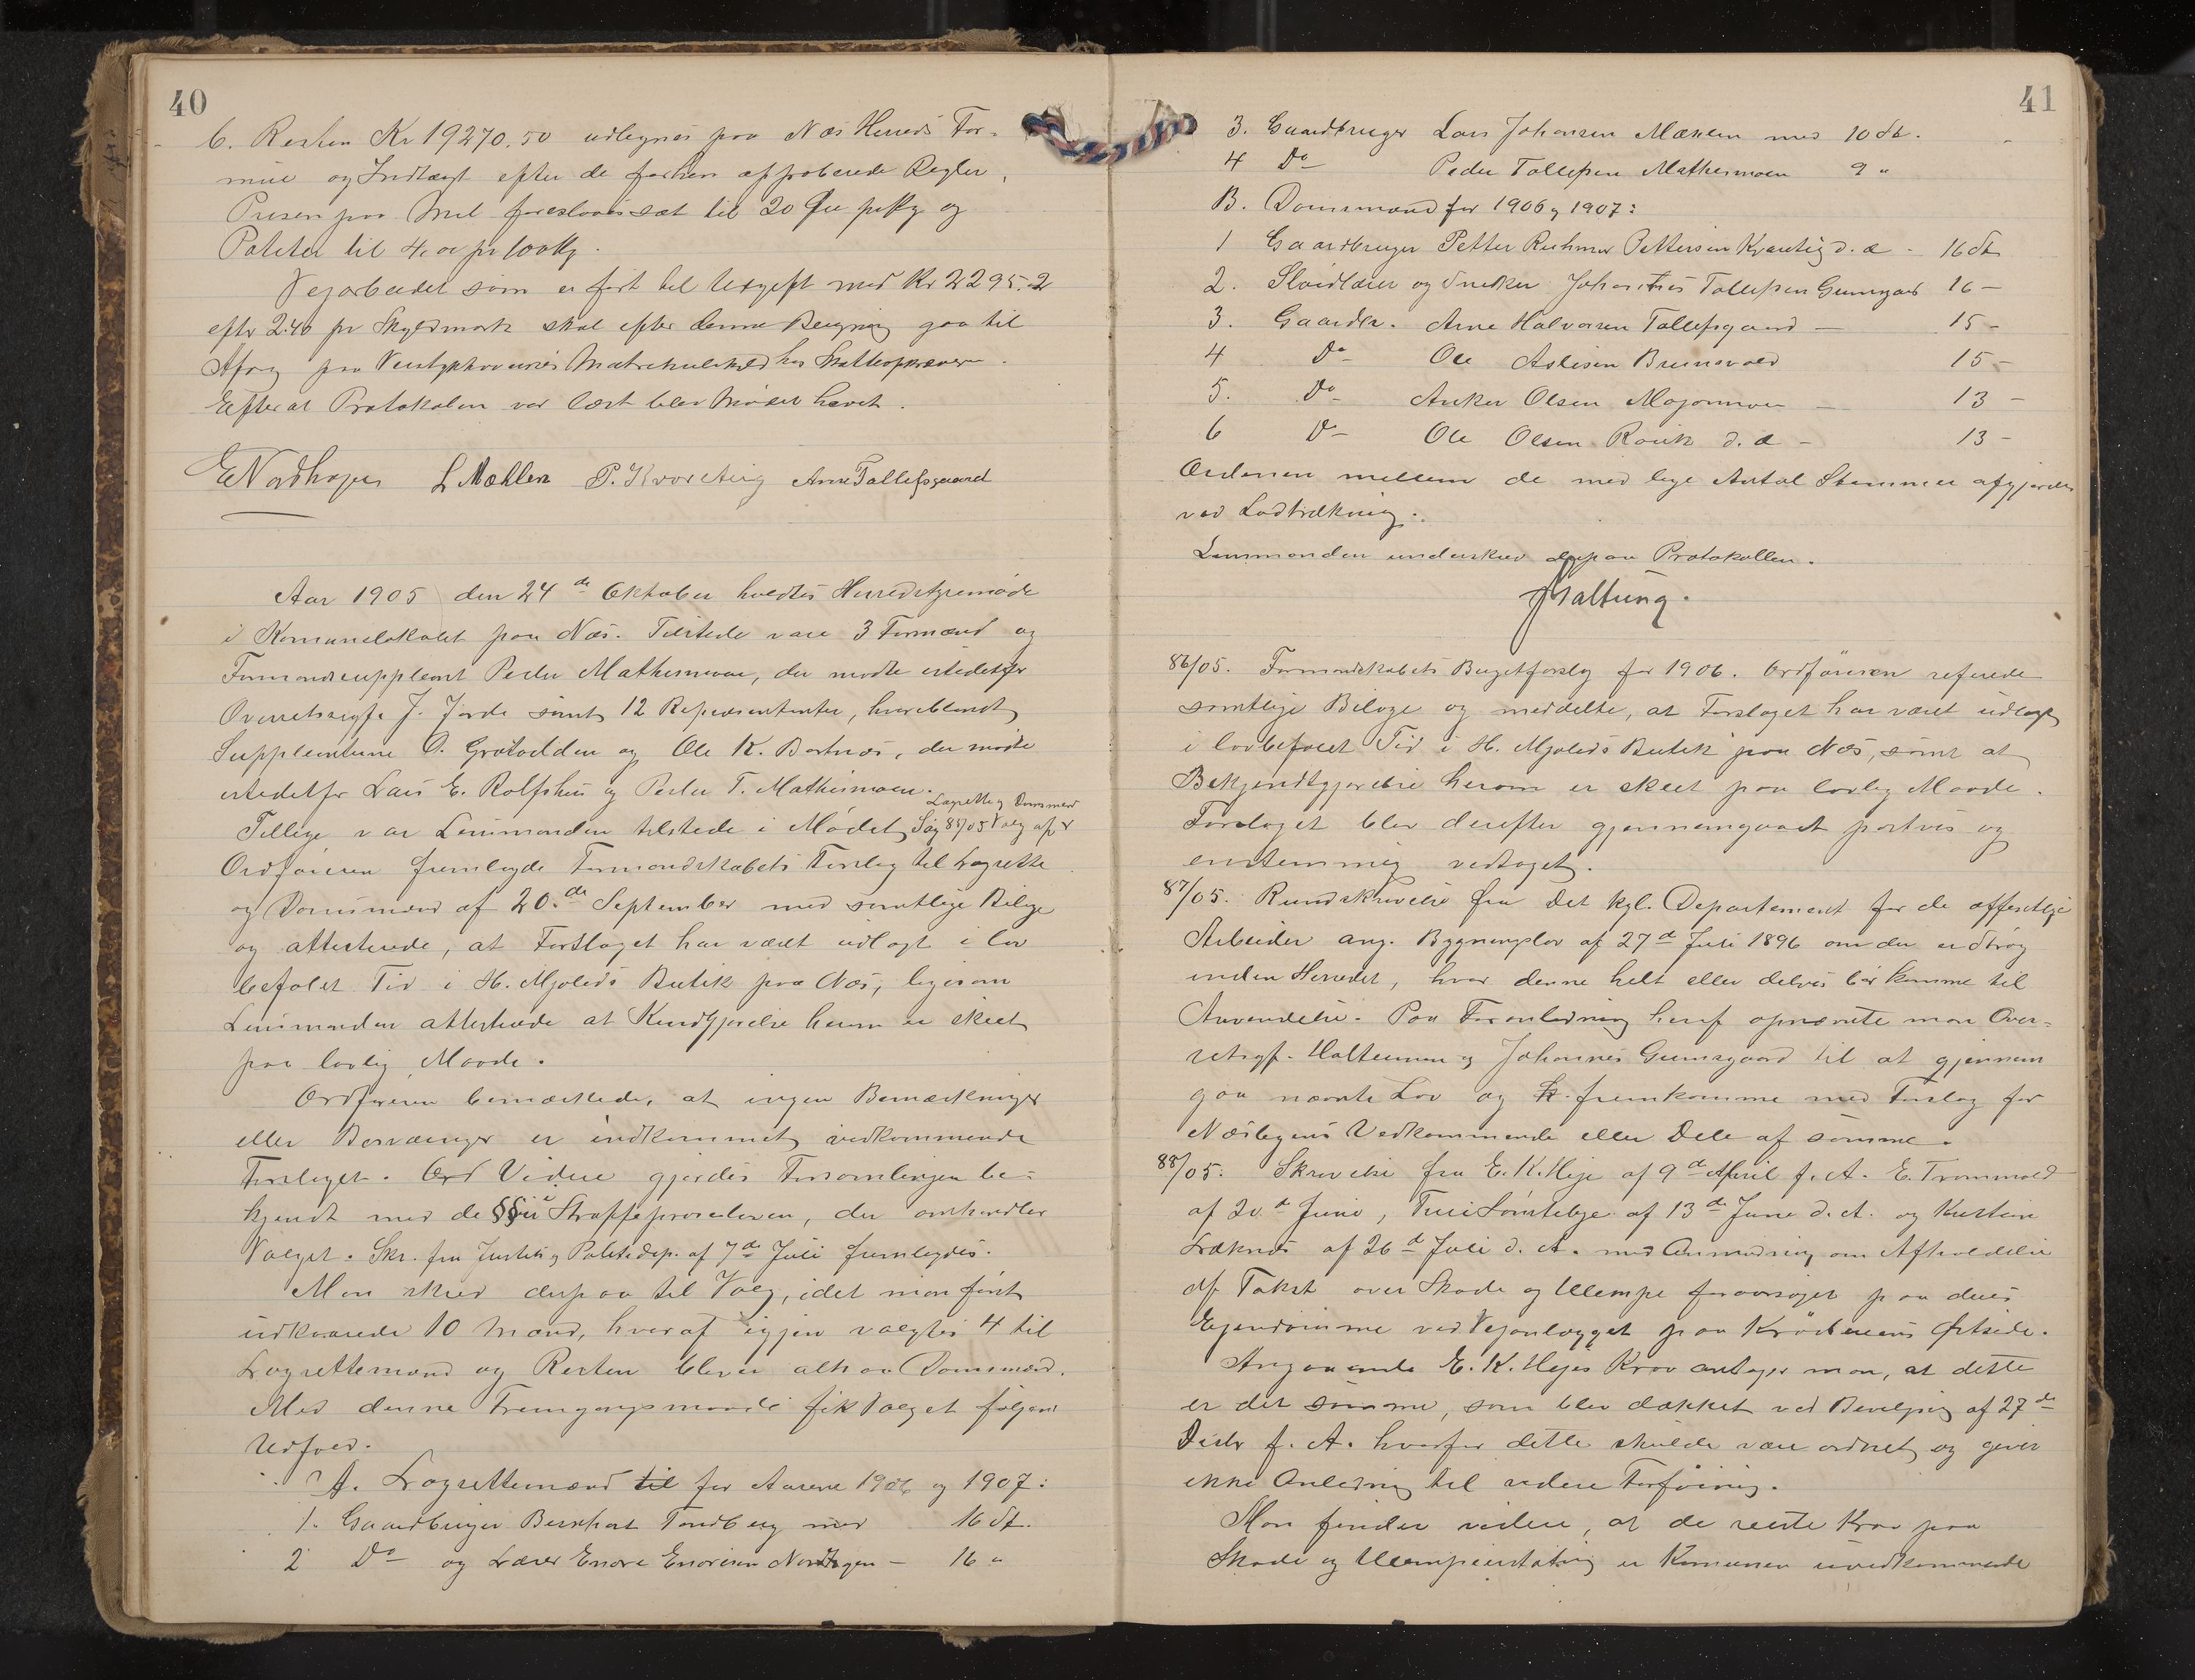 40
6. Resten Kr 19270.50 udlegnes paa Næs Herreds For-
mue og Indtægt efter de forhen approberede Regler,
Prisen paa Mel foreslaaes sat til 20 Øre pr Kg og
Poteter til 4,00 pr 100 Kg.
Vejarbeidet som er ført til Udgift med Kr 2295.2
efter 2.40 pr Skyldmark skal efter denne Beregning gaa til
Afdrag paa Matrikulskyld hos Skatteopkræver.
Efterat Protokolen var læst blev Mødet hævet.
E Nordhagen L Mæhlen P. Kvarteig Arne Tollefsgaard
Aar 1905 den 24de Oktober holdtes Herredstyremøde
i Komunelokalet paa Næs. Tilstede vare 3 Formænd og
Formandssuppleant Peder Mathismoen, der mødte istedetfor
Overretssagf. J. Jorde samt 12 Repræsentanter, hvoriblandt
Suppleanterne O. Grøtvelden og Ole K. Bortnæs, der mødte
istedetfor Lars E. Rolfshus og Peder T. Mathismoen.
Lagrette og Domsmænd
Tillige var Lensmanden tilstede i Mødet Sag 85/05 Valg af
Ordføreren fremlagde Formandskabets Forslag til Lagrette
og Domsmænd af 20de September med samtlige Bilage
og attesterede, at Forslaget har været udlagt i lov
befalet Tid i H. Mjøleds Butik paa Næs, ligesom
Lensmanden attesterede at Kundgjørelse herom er skeet
paa lovlig Maade.
Ordføreren bemærkede, at ingen Bemærkninger
eller Besværinger er indkommet vedkommende
Forslaget. Videre gjordes Forsamlingen be-
kjendt med de §§er i Straffeprosesloven, der omhandler
Valget. Skr. fra Justits og Politidep. af 7de Juli fremlagdes.
Man skred derpaa til Valg, idet man først
udkaarede 10 Mænd, hvoraf igjen valgtes 4 til
Lagrettemænd og Resten blev altsaa Domsmænd.
Med denne Fremgangsmaade fik Valget følgend
Udfald.
A. Lagrettemænd til for Aarene 1906 og 1907:
1. Gaardbruger Bernhart Tandberg med 16 St.
2 Do og Lærer Endre Endresen Nordhagen – 16 "
41
3. Gaardbruger Lars Johansen Mæhlen med 10 St.
4 Do Peder Tollefsen Mathismoen 9 "
B. Domsmænd for 1906 og 1907:
1 Gaardbruger Petter Pettersen Kvarteig d.æ - 16 St
2. Sløidlærer og Snedker Johannes Tollefsen Gunnsgaard 16 –
3. Gaardbr. Arne Halvorsen Tollefsgaard – 15 –
4 Do Ole Aslesen Brunsvold 15 –
5. Do Anker Olsen Mogormoen – 13 –
6 Do Ole Olsen Rovik d.æ – 13 –
Ordenen mellem de med lige Antal Stemmer afgjordes
ved Lodtrækning.
Lensmanden underskrev derpaa Protokollen.
Haltung.
86/05. Formandskabets Budgetforslag for 1906. Ordføreren referede
samtlige Bilage og meddelte, at Forslaget har været udlagt
i lovbefalet Tid i H. Mjøleds Butik paa Næs, samt at
Bekjendtgjørelse herom er skeet paa lovlig Maade.
Forslaget blev derefter gjennemgaaet postvis og
enstemmig vedtaget.
87/05. Rundskrivelse fra det kgl. Departement for de offentlige
Arbeider ang. Bygningslov af 27d Juli 1896 om der er Strøg
inden Herredet, hvor denne helt eller delvis bør komme til
Anvendelse. Paa Foranledning heraf opnævnte man Over-
retsagf. og Johannes Gunnsgaard til at gjennem
gaa nævnte Lov og fremkomme med Forslag for
Næsbyens Vedkommende eller Dele af samme.
88/05. Skrivelse fra E. K. Heje af 9de April f. A. E. Trommald
af 20d Juni, Turi Sørsteby af 13de Juni d. A. og Kristian
Læknes af 26d Juli d. A. med Anmodning om Afholdelse
af Takst over Skade og Ulempe foraarsaget paa deres
Ejendomme ved Vejanlægget paa Krøderens Østside.
Angaaende E. K. Hejes Krav antager man, at dette
er det samme, som blev dækket ved Bevilgning af 27de
Decbr f. A. hvorfor dette skulde være ordnet og giver
ikke Anledning til videre Forføining.
Man finder videre, at de reiste Krav paa
Skade og Ulempeerstatning er Komunen uvedkommende